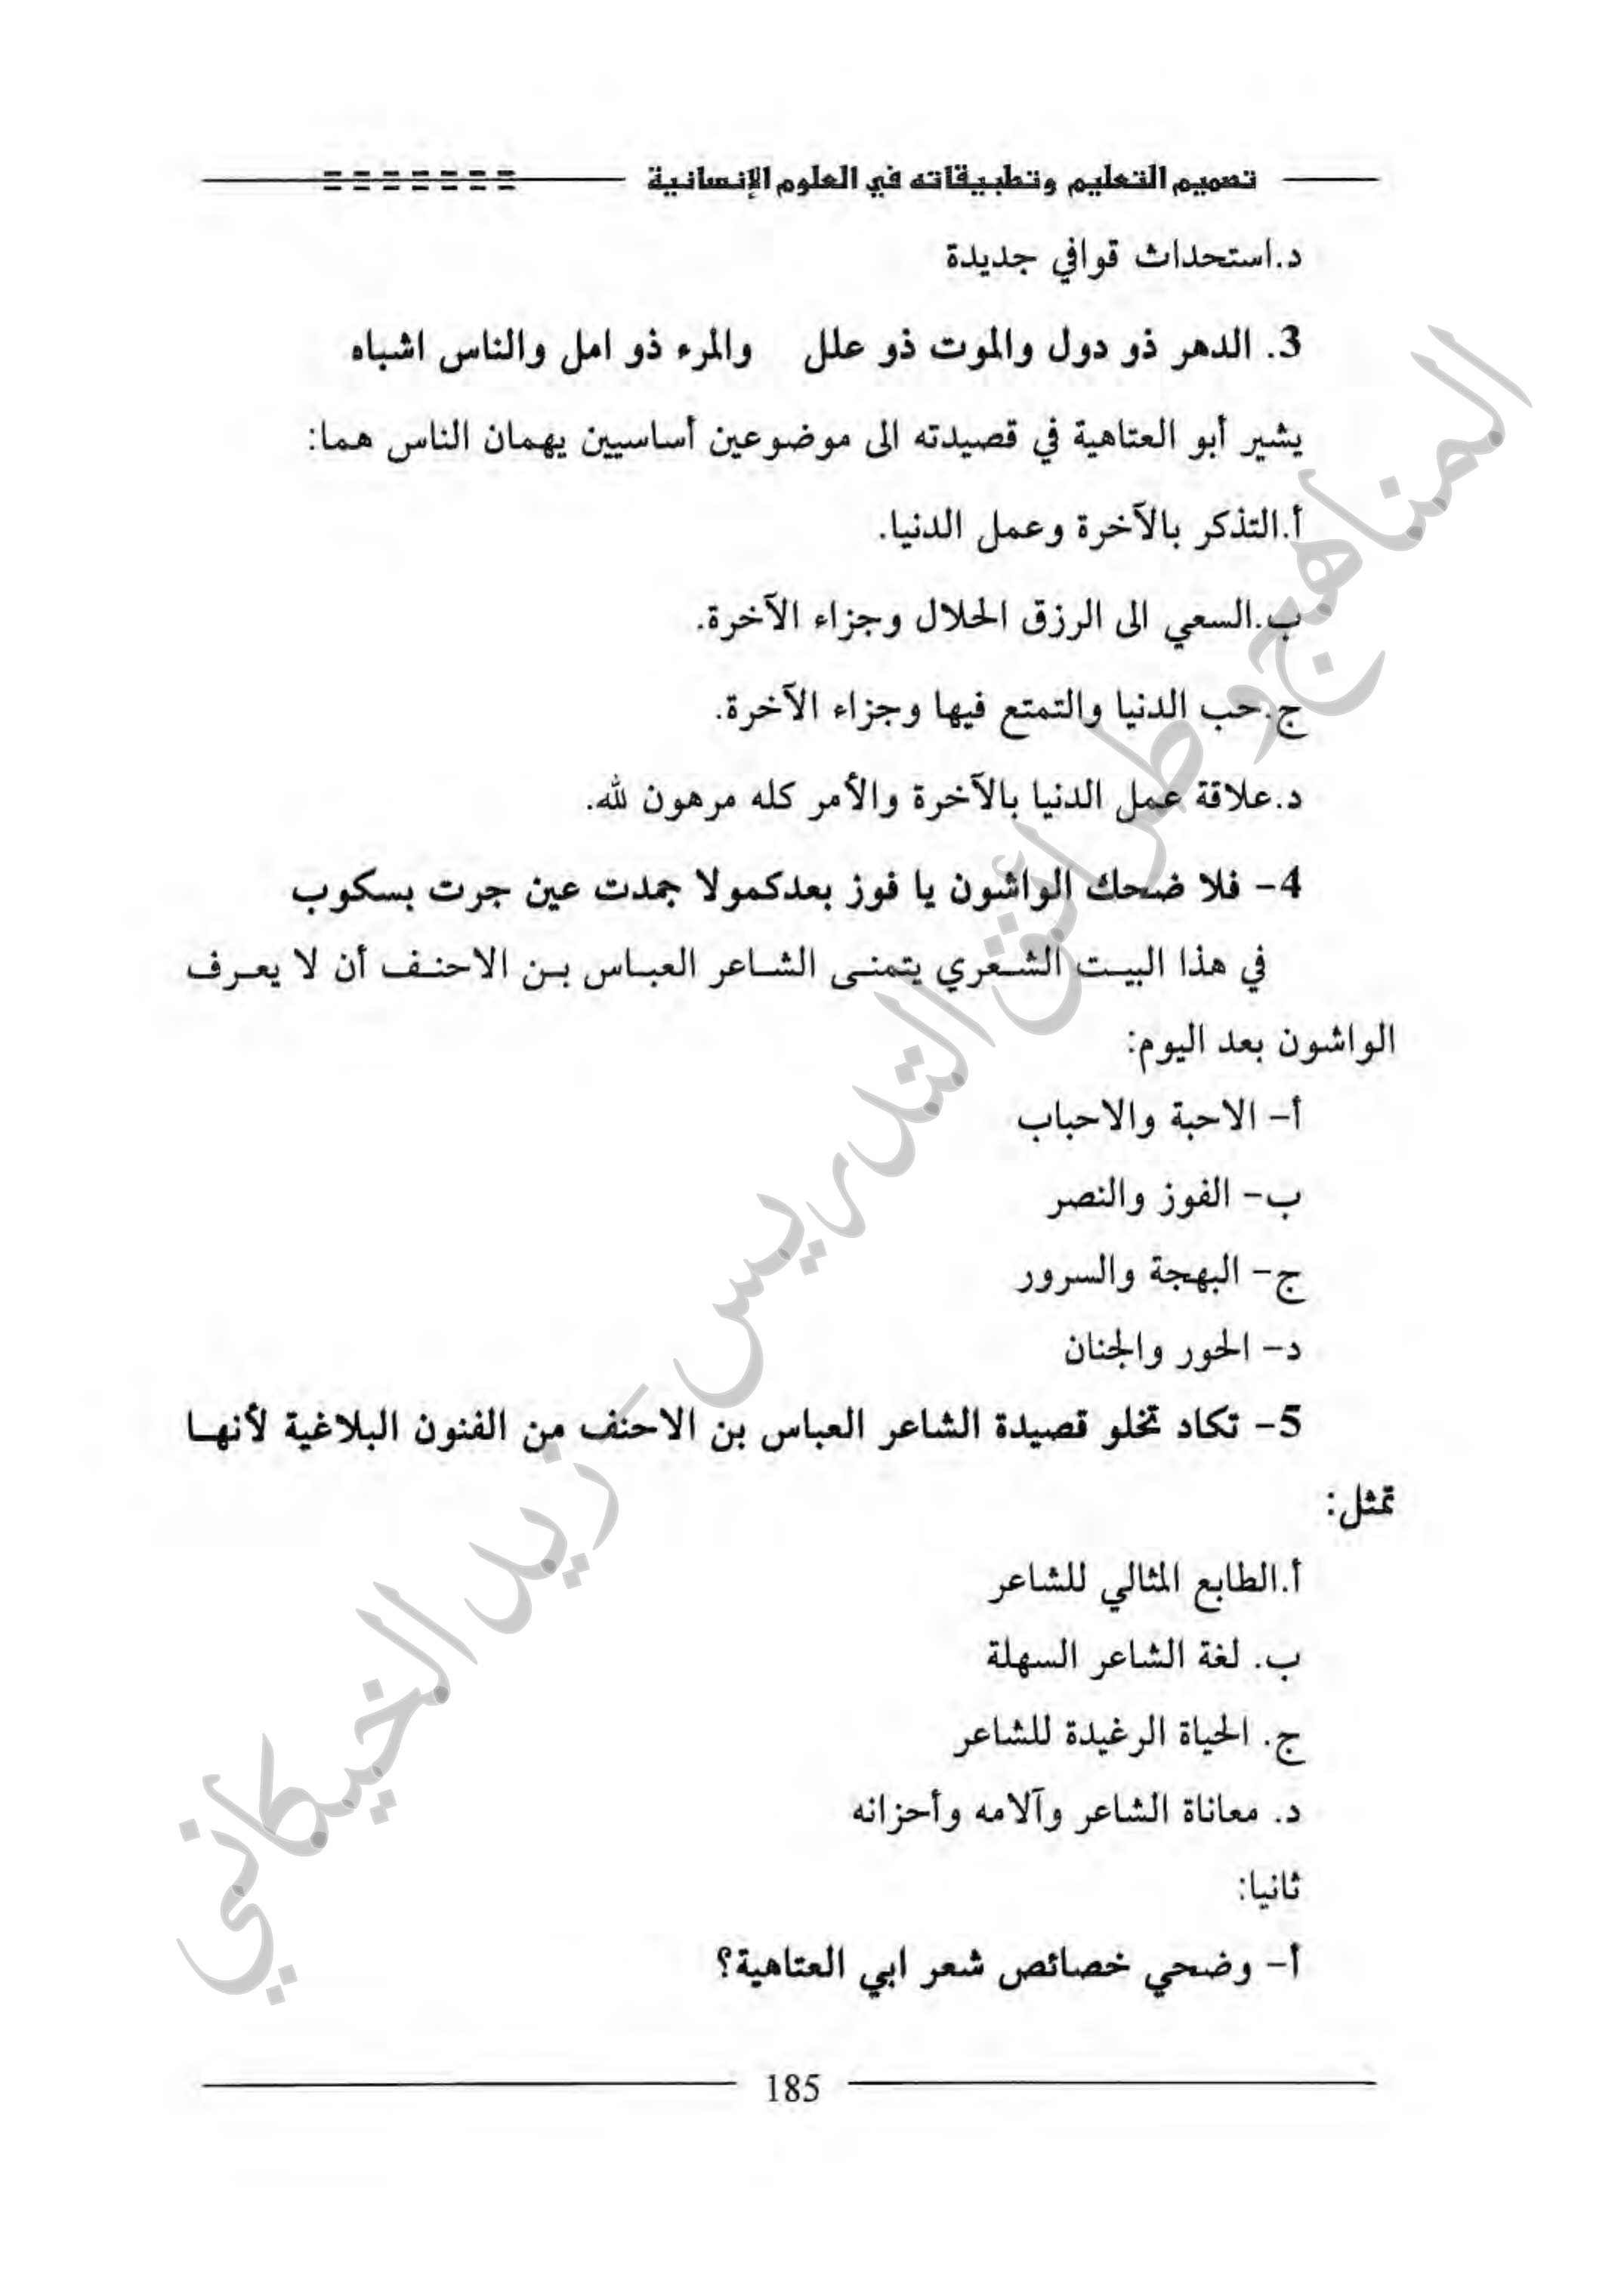 تصميم التعليم وتطبيقاته في العلوم الإنسانية
د.استحداث قوافي جديدة
3. الدهر ذو دول والموت ذو علل والمرء ذو امل والناس اشباه
يشير أبو العتاهية في قصيدته الى موضوعين أساسيين يهمان الناس هما:
أ.التذكر بالآخرة وعمل الدنيا.
ب.السعي الى الرزق الحلال وجزاء الآخرة.
ج.حب الدنيا والتمتع فيها وجزاء الآخرة.
د.علاقة عمل الدنيا بالآخرة والأمر كله مرهون لله.
4- فلا ضحك الواشون يا فوز بعدكمولا جمدت عين جرت بسكوب
في هذا البيت الشعري يتمنى الشاعر العباس بن الاحنف أن لا يعرف
الواشون بعد اليوم:
أ- الاحبة والاحباب
ب- الفوز والنصر
ج- البهجة والسرور
د- الحور والجنان
5- تكاد تخلو قصيدة الشاعر العباس بن الاحنف من الفنون البلاغية لأنها
تمثل:
أ.الطابع المثالي للشاعر
ب. لغة الشاعر السهلة
ج. الحياة الرغيدة للشاعر
د. معاناة الشاعر وآلامه وأحزانه
ثانيا:
أ- وضحي خصائص شعر ابي العتاهية؟
185
المناهج وطرائق التدريس - زيد الخيكاني